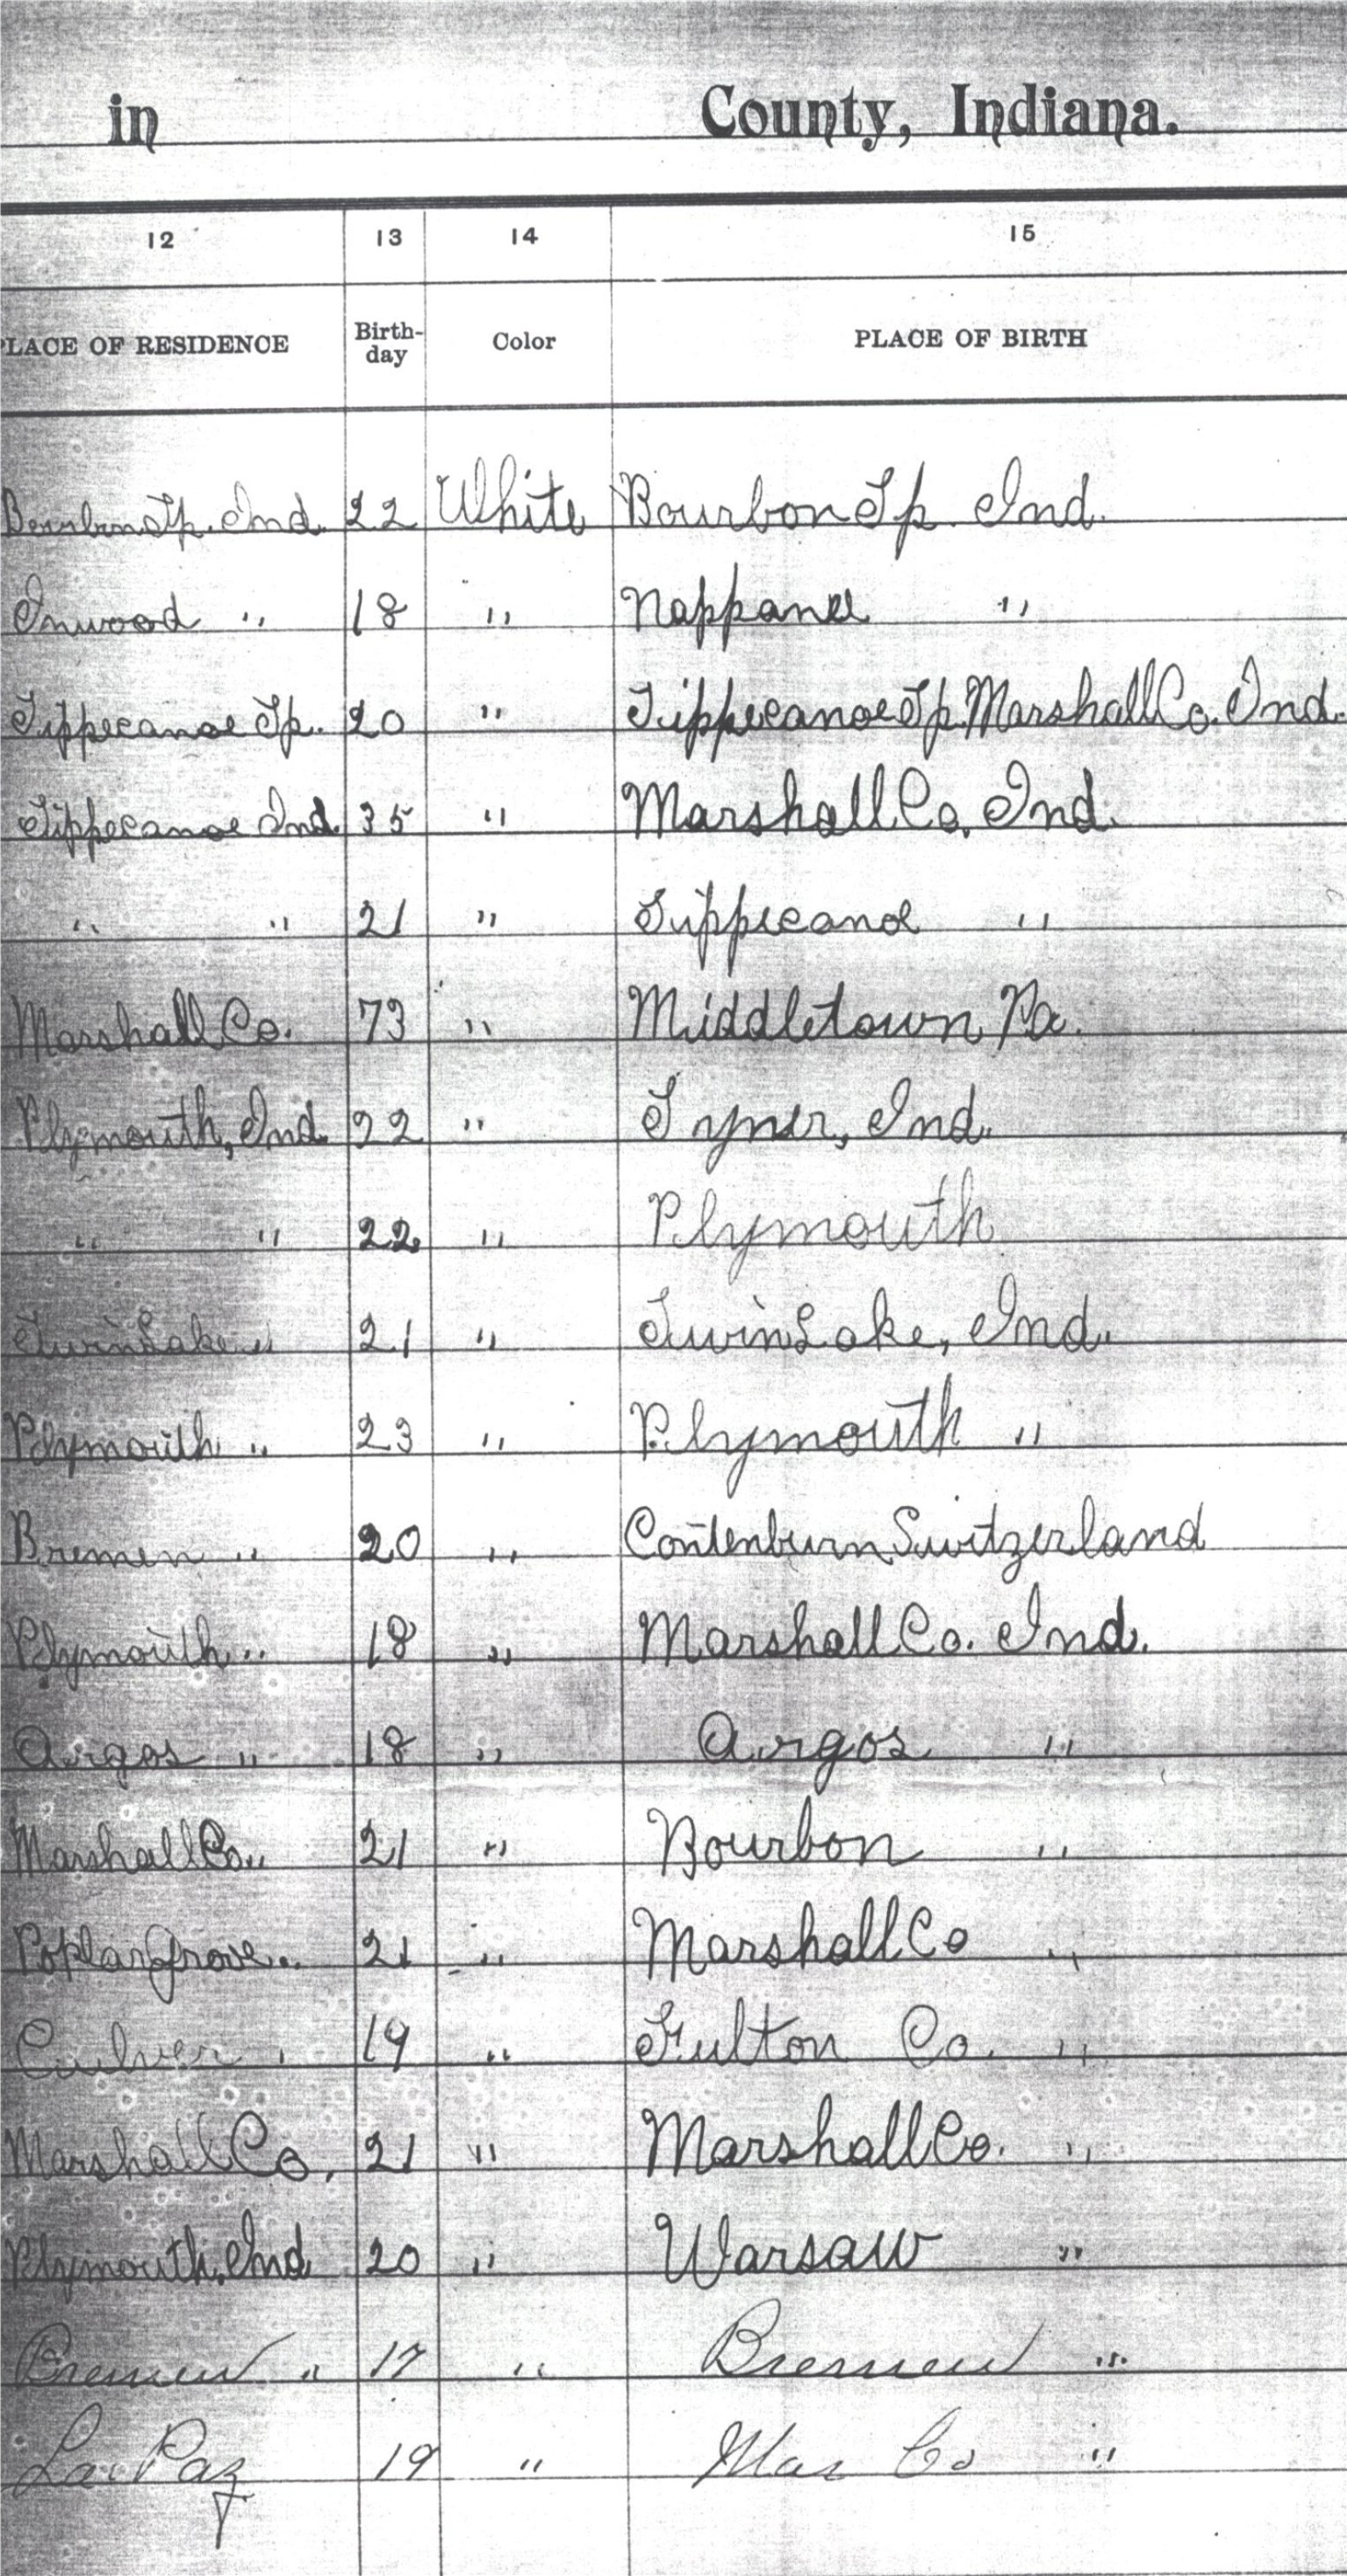 in County, Indiana.
12 13 14 15
PLACE OF RESIDENCE Birth-day Color PLACE OF BIRTH
Bourbon Tp. Ind. 22 White Bourbon Tp Ind.
Inwood " 18 " Nappanee "
Tippecanoe Tp. 20 " Tippecanoe Tp. Marshall Co. Ind.
Tippecanoe Ind. 35 " Marshall Co. Ind.
" " 21 " Tippecanoe "
Marshall Co. 73 " Middletown Pa.
Plymouth, Ind. 22 " Tyner, Ind.
" " 22 " Plymouth
Twin Lake " 21 " Twin Lake, Ind.
Plymouth " 23 " Plymouth "
Bremen " 20 " Contenburn Switzerland
Plymouth " 18 " Marshall Co. Ind.
Argos " 18 " Argos "
Marshall Co. " 21 " Bourbon "
Poplar Grove " 21 " Marshall Co "
Culver " 19 " Fulton Co. "
Marshall Co. 21 " Marshall Co. "
Plymouth, Ind 20 " Warsaw "
Bremen " 17 " Bremen "
La Paz 19 " Mar Co "